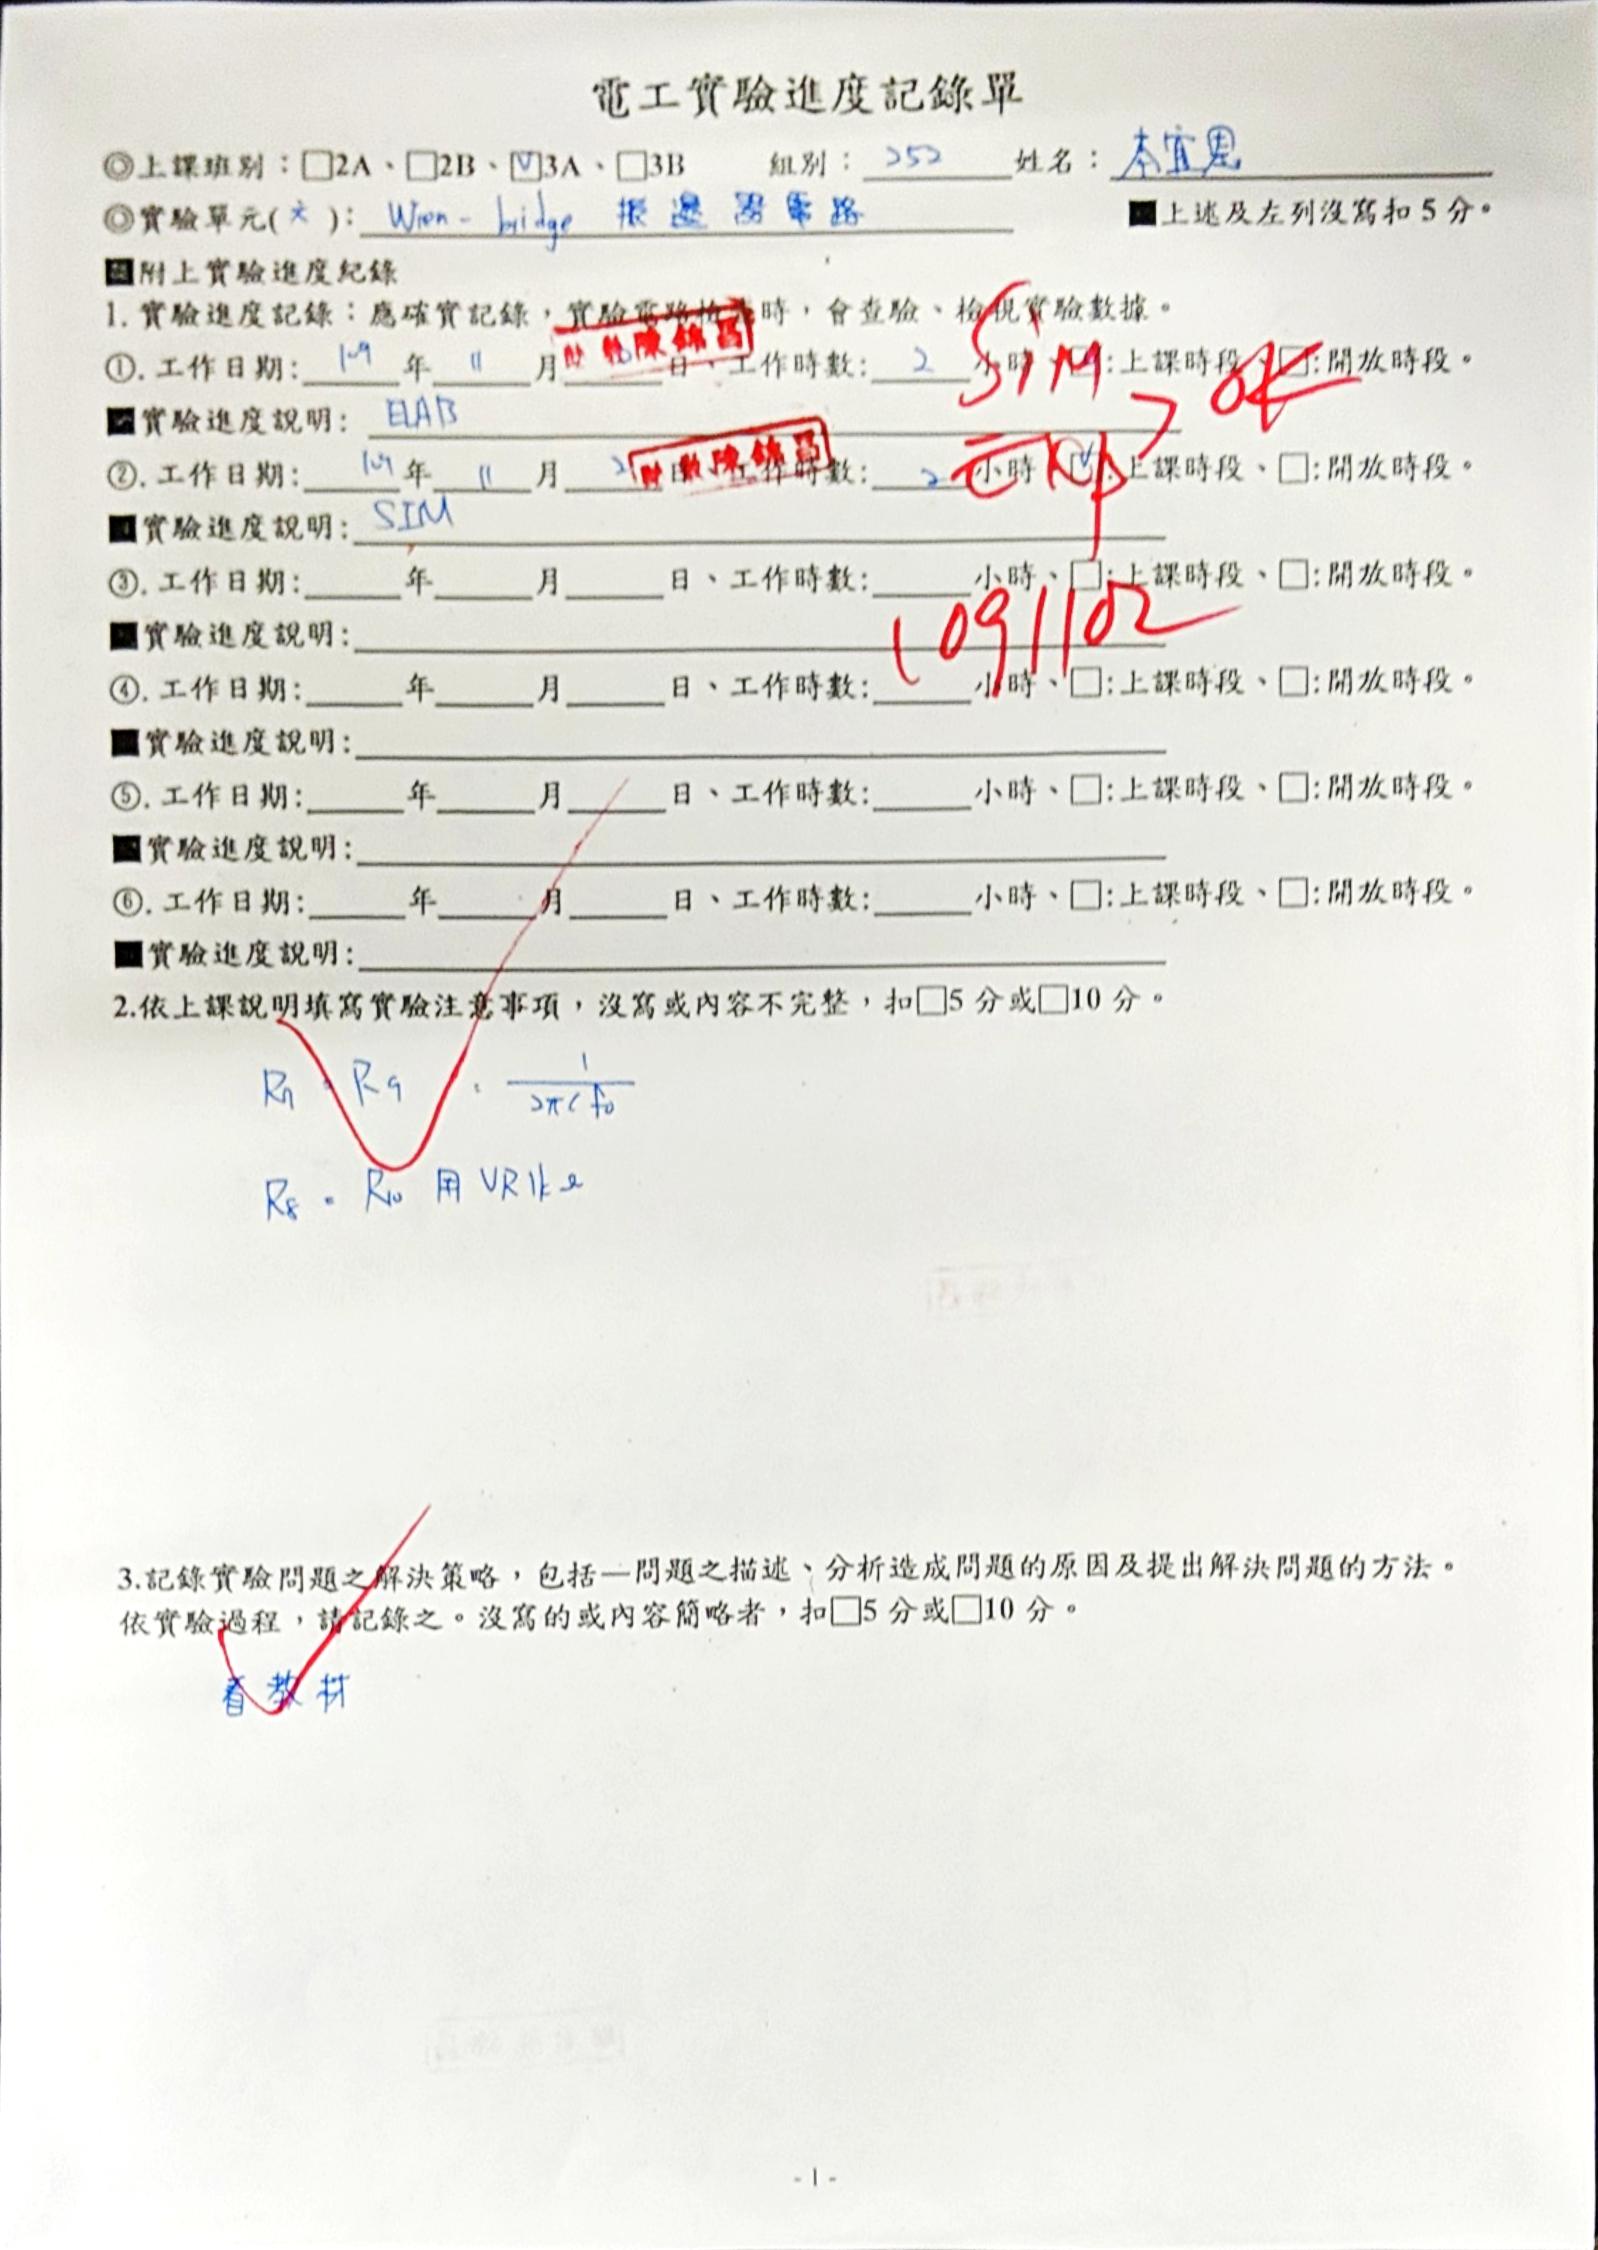 電工實驗進度記錄單
◎上課班別：□2A、□2B、☑3A、□3B 組別：252 姓名：李宜恩
◎實驗單元(六)：Wien-bridge 振盪器電路 ■上述及左列沒寫扣5分。
附上實驗進度紀錄
1. 實驗進度記錄：應確實記錄，實驗電路檢查時，會查驗、檢視實驗數據。
①. 工作日期: 109 年 11 月 日、工作時數: 2 小時、:上課時段、□:開放時段。
陳錦昌
SIM
OK
實驗進度說明: ELAB
②. 工作日期: 109 年 11 月 2 日、工作時數: 2 小時、☑:上課時段、□:開放時段。
陳錦昌
Exp
■實驗進度說明: SIM
③. 工作日期: 年 月 日、工作時數: 小時、□:上課時段、□:開放時段。
1091102
■實驗進度說明:
④. 工作日期: 年 月 日、工作時數: 小時、□:上課時段、□:開放時段。
■實驗進度說明:
⑤. 工作日期: 年 月 日、工作時數: 小時、□:上課時段、□:開放時段。
■實驗進度說明:
⑥. 工作日期: 年 月 日、工作時數: 小時、□:上課時段、□:開放時段。
■實驗進度說明:
2.依上課說明填寫實驗注意事項，沒寫或內容不完整，扣□5分或□10分。
R9 = 1/2πCf0
R8 = R10 用 VR 1k
3.記錄實驗問題之解決策略，包括—問題之描述、分析造成問題的原因及提出解決問題的方法。
依實驗過程，請記錄之。沒寫的或內容簡略者，扣□5分或□10分。
看教材
- 1 -